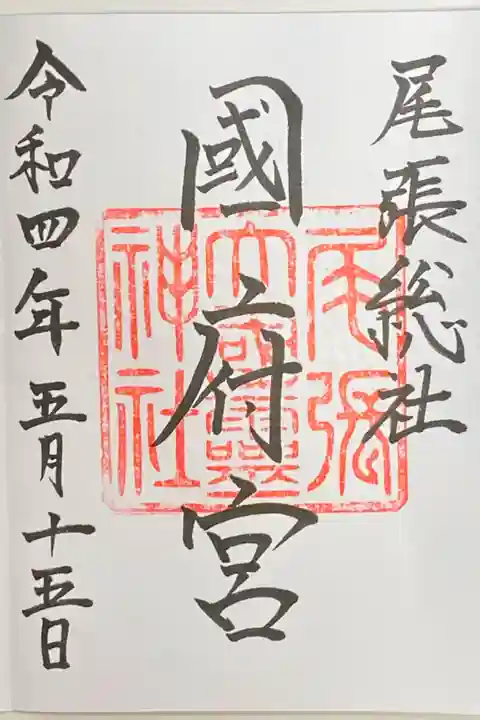 尾張総社
國府宮
令和四年五月十五日
尾張
大國霊
神社